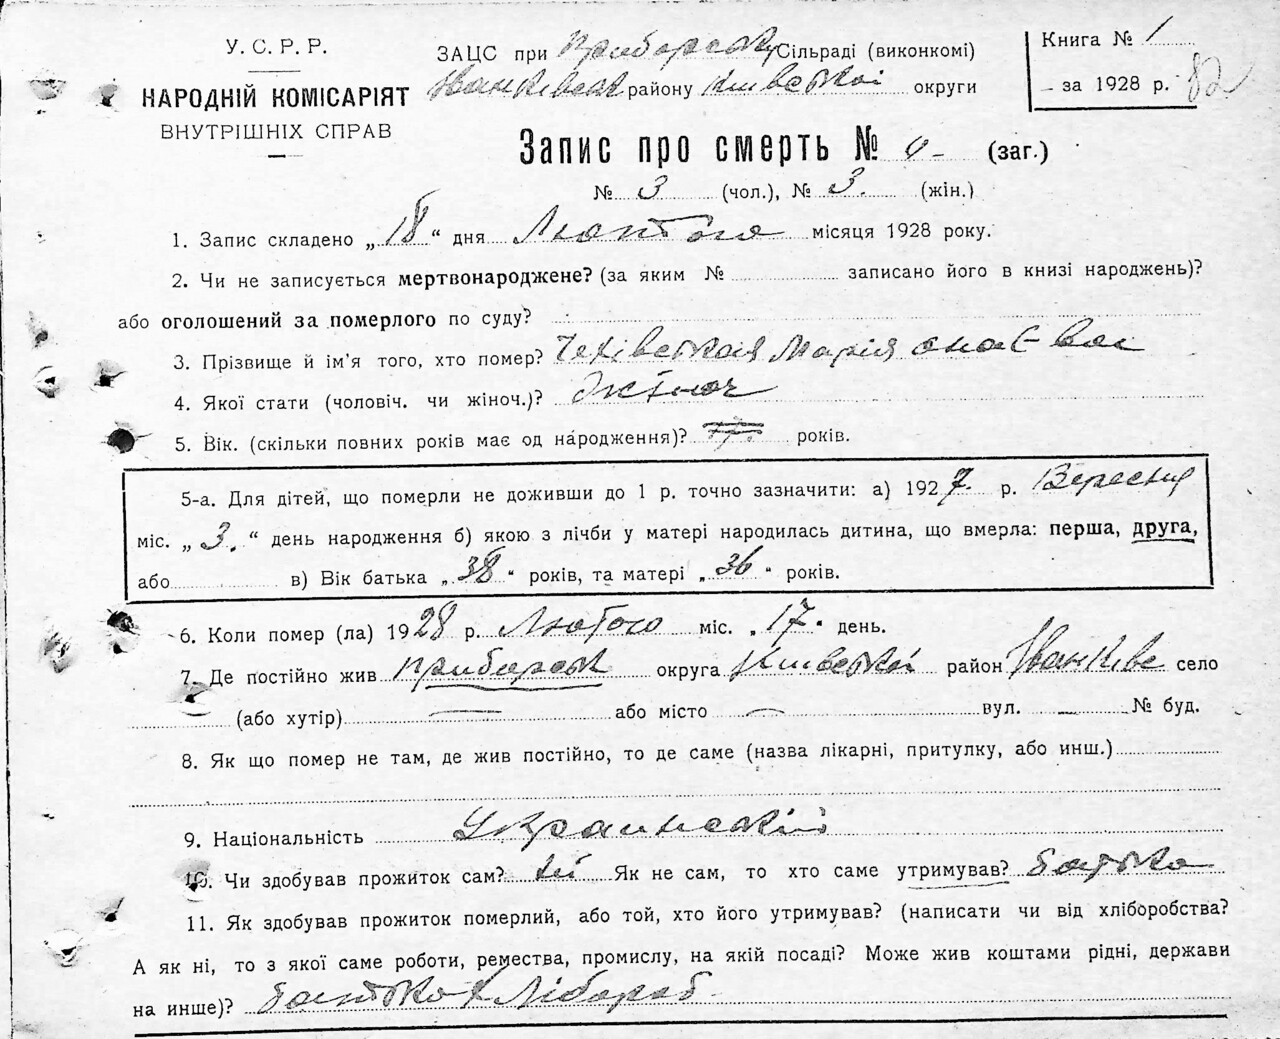 У. С. Р. Р.
НАРОДНІЙ КОМІСАРІЯТ
ВНУТРІШНІХ СПРАВ
ЗАЦС при Приборській Сільраді (виконкомі)
Іванківськ району Київської округи
Книга № 1
за 1928 р. 82
Запис про смерть № (заг.)
№ 3 (чол.), № 3. (жін.)
1. Запис складено „18“ дня Лютого місяця 1928 року.
2. Чи не записується мертвонароджене? (за яким № записано його в книзі народжень)?
або оголошений за померлого по суду?
3. Прізвище й ім'я того, хто помер? Марія
4. Якої стати (чоловіч. чи жіноч.)? Жіноч
5. Вік. (скільки повних років має од народження)? років.
5-а. Для дітей, що померли не доживши до 1 р. точно зазначити: а) 1927. р. Вересня
міс. „3.“ день народження б) якою з лічби у матері народилась дитина, що вмерла: перша, друга,
або в) Вік батька „38“ років, та матері „36“ років.
6. Коли помер (ла) 1928 р. Лютого міс. „17“ день.
7. Де постійно жив Приборськ округа Київської район Іванківс село
(або хутір) або місто вул. № буд.
8. Як що помер не там, де жив постійно, то де саме (назва лікарні, притулку, або инш.)
9. Національність Украинский
10. Чи здобував прожиток сам? Ні Як не сам, то хто саме утримував? батько
11. Як здобував прожиток померлий, або той, хто його утримував? (написати чи від хліборобства?
А як ні, то з якої саме роботи, ремества, промислу, на якій посаді? Може жив коштами рідні, держави
на инше)? батько хлібороб.